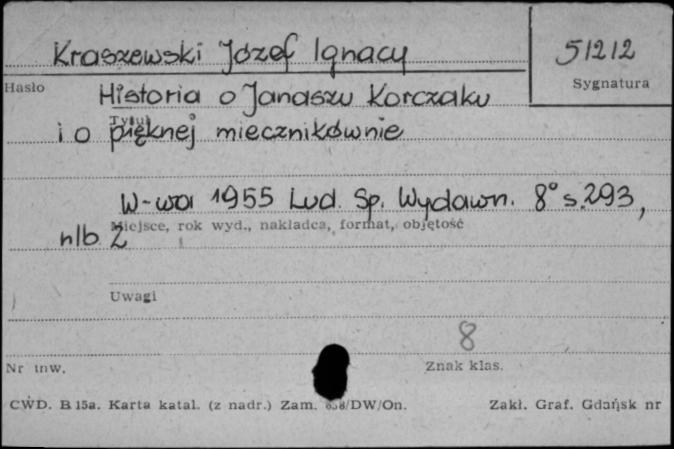 Kraszewski Józef Ignacy
51212
Hasło
Sygnatura
Historia o Janaszu Korczaku
Tytuł
i o pięknej miecznikównie
W-wa 1955 Lud. Sp. Wydawn. 8° s. 293,
Miejsce, rok wyd., nakładca, format, objętość
nlb 2
Uwagi
8
Nr inw.
Znak klas.
CWD. B 15a. Karta katal. (z nadr.) Zam. /DW/On.
Zakł. Graf. Gdańsk nr